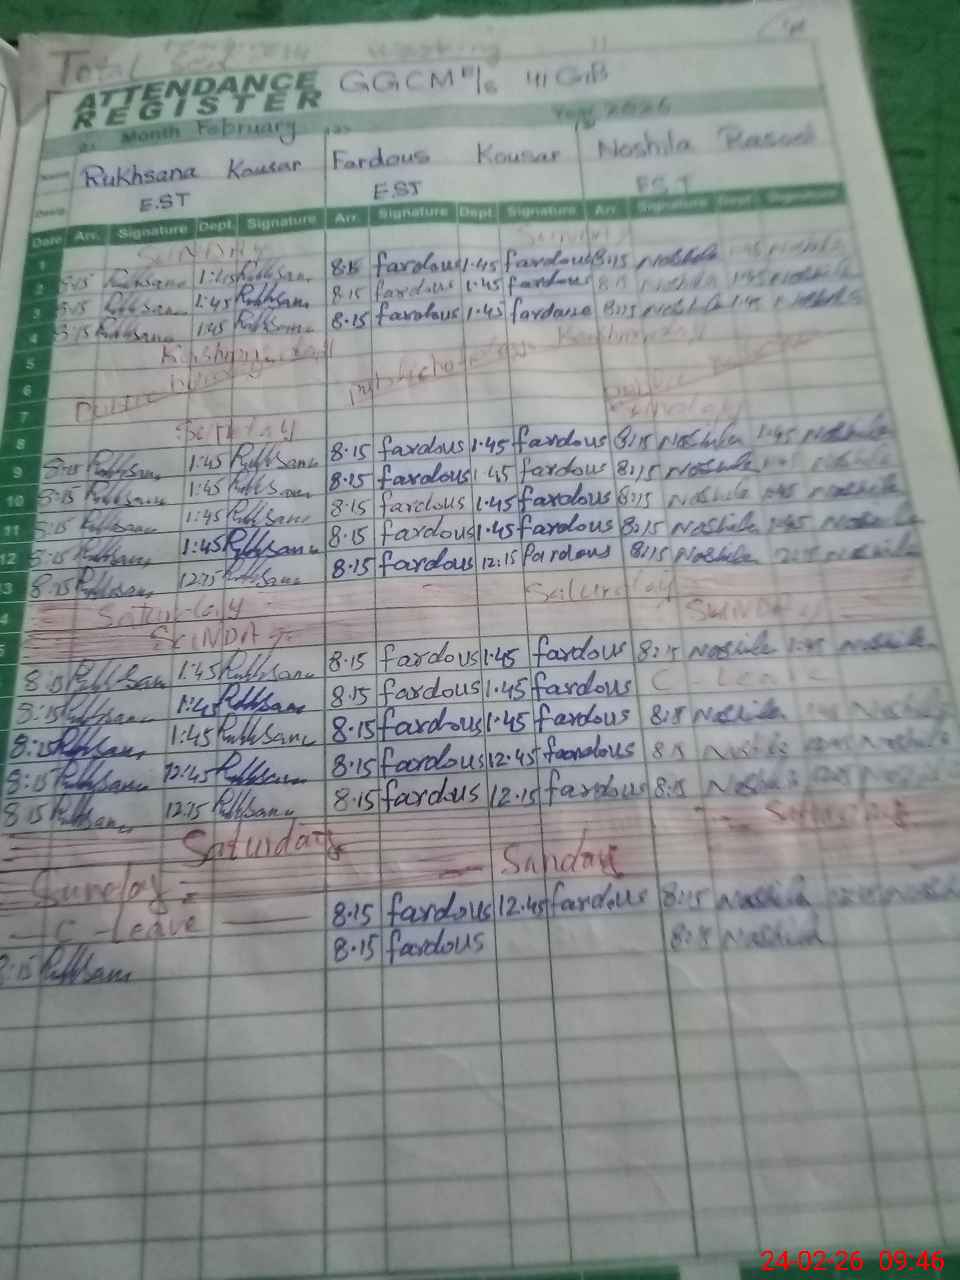 Total
ATTENDANCE REGISTER GGCM 41 GB
Month February Year 2026
Name Rukhsana Kousar Fardous Kousar Noshila
Desig. E.ST E.ST E.S.T
Date Arr. Signature Dept. Signature Arr. Signature Dept. Signature Arr. Signature Dept. Signature
1 SUNDAY Sunday
2 8:15 Rukhsana 1:45 Rukhsana 8.15 fardous 1.45 fardous 8:15 Noshila 1:45 Noshila
3 8:15 Rukhsana 1:45 Rukhsana 8.15 fardous 1.45 fardous 8:15 Noshila 1:45 Noshila
4 8:15 Rukhsana 1:45 Rukhsana 8.15 fardous 1.45 fardous 8:15 Noshila 1:45 Noshila
5 Kashmir day Kashmir day
6 Public holiday
7
8 Sunday Sunday
9 8:15 Rukhsana 1:45 Rukhsana 8.15 fardous 1.45 fardous 8:15 Noshila 1:45 Noshila
10 8:15 Rukhsana 1:45 Rukhsana 8.15 fardous 1.45 fardous 8:15 Noshila
11 8:15 Rukhsana 1:45 Rukhsana 8.15 fardous 1.45 fardous 8:15 Noshila 1:45 Noshila
12 8:15 Rukhsana 1:45 Rukhsana 8.15 fardous 1.45 fardous 8:15 Noshila 1:45 Noshila
13 8:15 Rukhsana 12:15 Rukhsana 8.15 fardous 12.15 fardous 8:15 Noshila 12:15 Noshila
Saturday Saturday
SUNDAY SUNDAY
8:15 Rukhsana 1:45 Rukhsana 8.15 fardous 1.45 fardous 8:15 Noshila 1:45 Noshila
8:15 Rukhsana 1:45 Rukhsana 8.15 fardous 1.45 fardous C Leave
8:15 Rukhsana 1:45 Rukhsana 8.15 fardous 1.45 fardous 8:15 Noshila 1:45 Noshila
8:15 Rukhsana 12:45 Rukhsana 8.15 fardous 12.45 fardous 8:15 Noshila Noshila
8:15 Rukhsana 12:15 Rukhsana 8.15 fardous 12.15 fardous 8:15 Noshila Noshila
Saturday Saturday
Sunday Sunday
C - Leave 8.15 fardous 12.45 fardous 8:15 Noshila
8:15 Rukhsana 8.15 fardous 8:15 Noshila
24-02-26 09:46